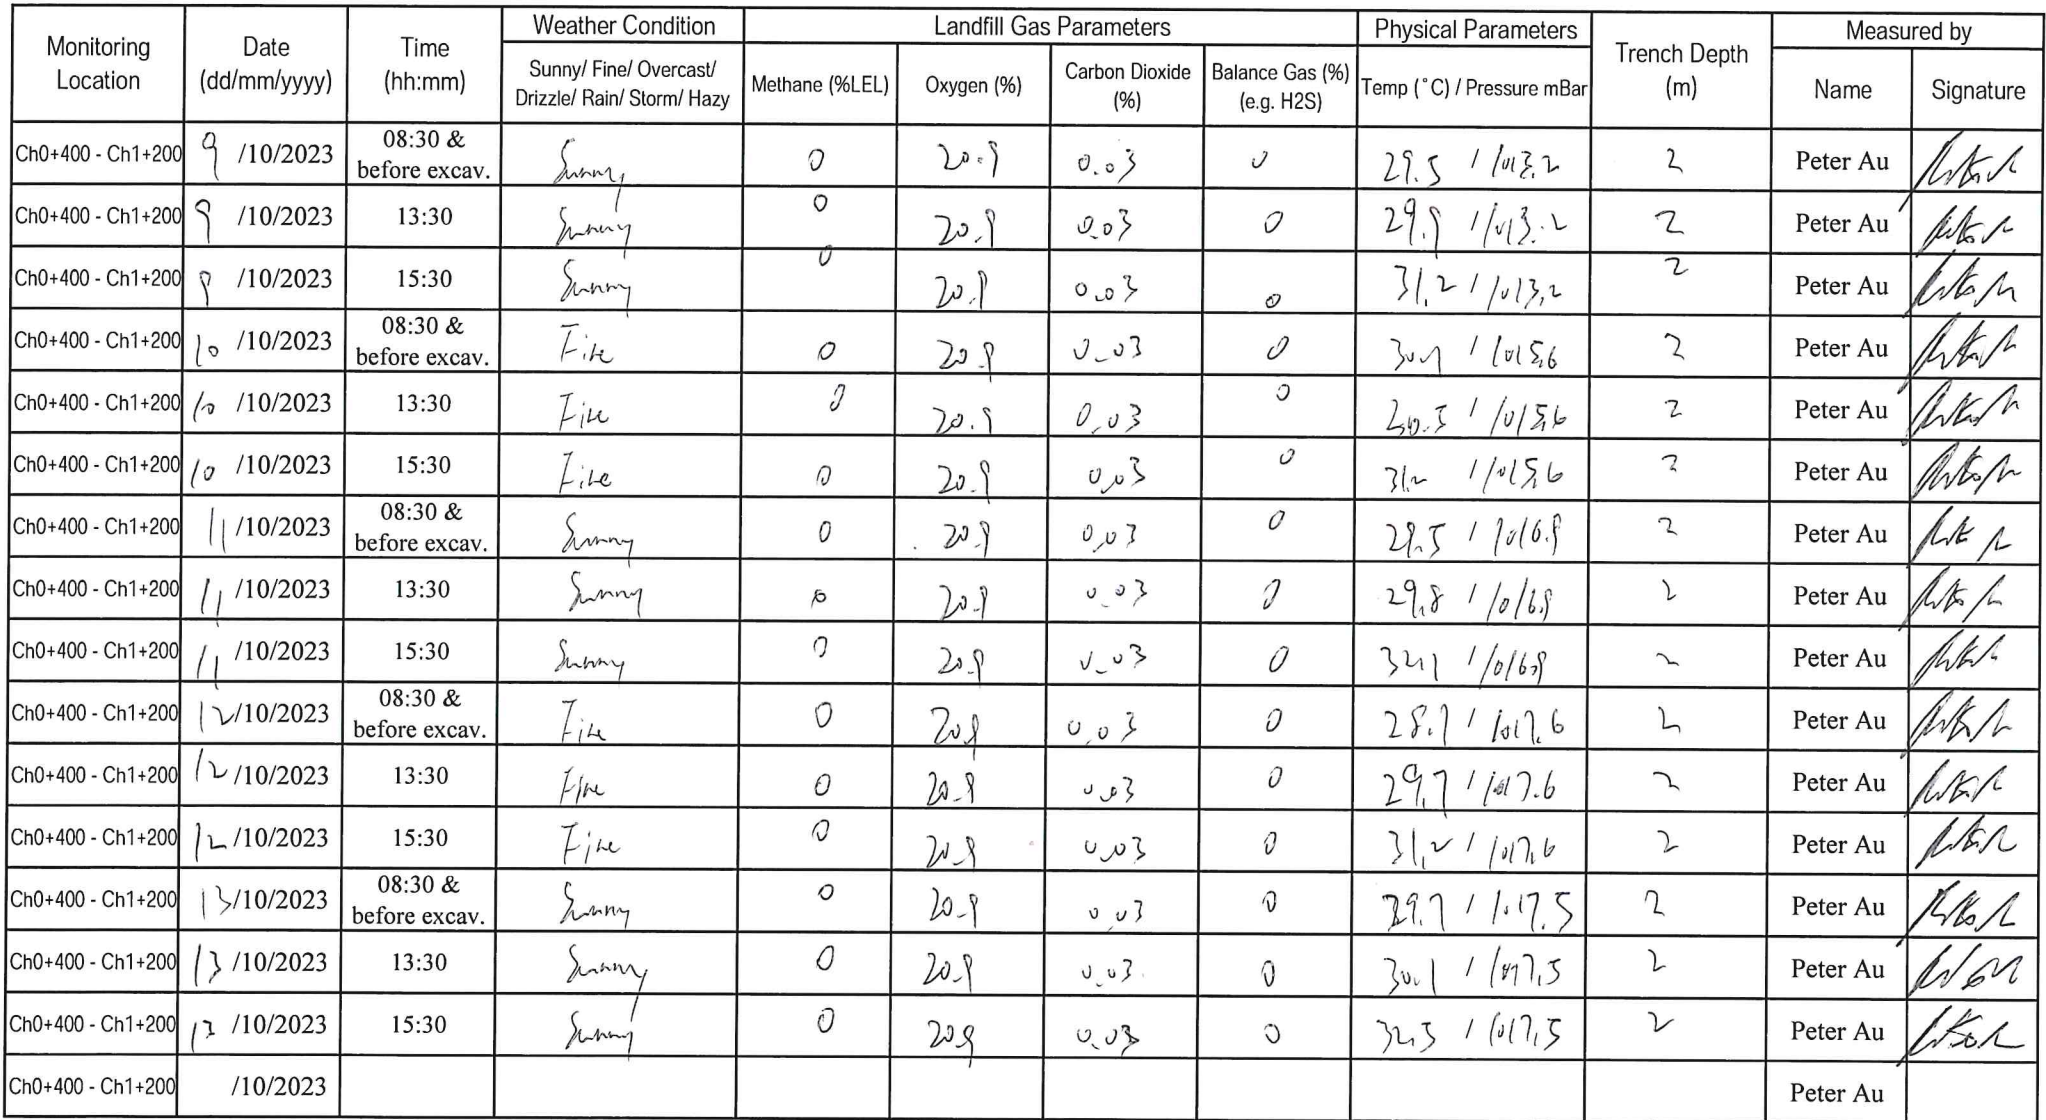 Monitoring Location | Date (dd/mm/yyyy) | Time (hh:mm) | Weather Condition | Landfill Gas Parameters | Physical Parameters | Trench Depth (m) | Measured by
Sunny/ Fine/ Overcast/ Drizzle/ Rain/ Storm/ Hazy | Methane (%LEL) | Oxygen (%) | Carbon Dioxide (%) | Balance Gas (%) (e.g. H2S) | Temp (°C) / Pressure mBar | Name | Signature
Ch0+400 - Ch1+200 | 9 /10/2023 | 08:30 & before excav. | Sunny | 0 | 20.9 | 0.03 | 0 | 29.5 / 1013.2 | 2 | Peter Au
Ch0+400 - Ch1+200 | 9 /10/2023 | 13:30 | Sunny | 0 | 20.9 | 0.03 | 0 | 29.9 / 1013.2 | 2 | Peter Au
Ch0+400 - Ch1+200 | 9 /10/2023 | 15:30 | Sunny | 0 | 20.9 | 0.03 | 0 | 31.2 / 1013.2 | 2 | Peter Au
Ch0+400 - Ch1+200 | 10 /10/2023 | 08:30 & before excav. | Fine | 0 | 20.9 | 0.03 | 0 | / 1015.6 | 2 | Peter Au
Ch0+400 - Ch1+200 | 10 /10/2023 | 13:30 | Fine | 0 | 20.9 | 0.03 | 0 | 30.5 / 1015.6 | 2 | Peter Au
Ch0+400 - Ch1+200 | 10 /10/2023 | 15:30 | Fine | 0 | 20.9 | 0.03 | 0 | 31.2 / 1015.6 | 2 | Peter Au
Ch0+400 - Ch1+200 | 11 /10/2023 | 08:30 & before excav. | Sunny | 0 | 20.9 | 0.03 | 0 | 29.5 / 1016.9 | 2 | Peter Au
Ch0+400 - Ch1+200 | 11 /10/2023 | 13:30 | Sunny | 0 | 20.9 | 0.03 | 0 | 29.8 / 1016.9 | 2 | Peter Au
Ch0+400 - Ch1+200 | 11 /10/2023 | 15:30 | Sunny | 0 | 20.9 | 0.03 | 0 | 32.1 / 1016.9 | 2 | Peter Au
Ch0+400 - Ch1+200 | 12 /10/2023 | 08:30 & before excav. | Fine | 0 | 20.9 | 0.03 | 0 | / 1017.6 | 2 | Peter Au
Ch0+400 - Ch1+200 | 12 /10/2023 | 13:30 | Fine | 0 | 20.9 | 0.03 | 0 | 29.7 / 1017.6 | 2 | Peter Au
Ch0+400 - Ch1+200 | 12 /10/2023 | 15:30 | Fine | 0 | 20.9 | 0.03 | 0 | 31.2 / 1017.6 | 2 | Peter Au
Ch0+400 - Ch1+200 | 13 /10/2023 | 08:30 & before excav. | Sunny | 0 | 20.9 | 0.03 | 0 | 29.7 / 1017.5 | 2 | Peter Au
Ch0+400 - Ch1+200 | 13 /10/2023 | 13:30 | Sunny | 0 | 20.9 | 0.03 | 0 | 30.1 / 1017.5 | 2 | Peter Au
Ch0+400 - Ch1+200 | 13 /10/2023 | 15:30 | Sunny | 0 | 20.9 | 0.03 | 0 | 32.5 / 1017.5 | 2 | Peter Au
Ch0+400 - Ch1+200 | /10/2023 | Peter Au